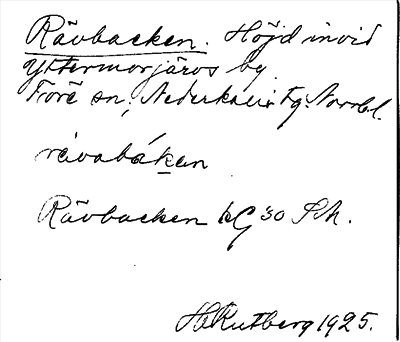 Rävbacken. Höjd invid
Yttermorjärvs by
Töre sn, Nederkalix tg. Norrb.l.
rävabákan
Rävbacken bG 30 SM.
H Rutberg 1925.